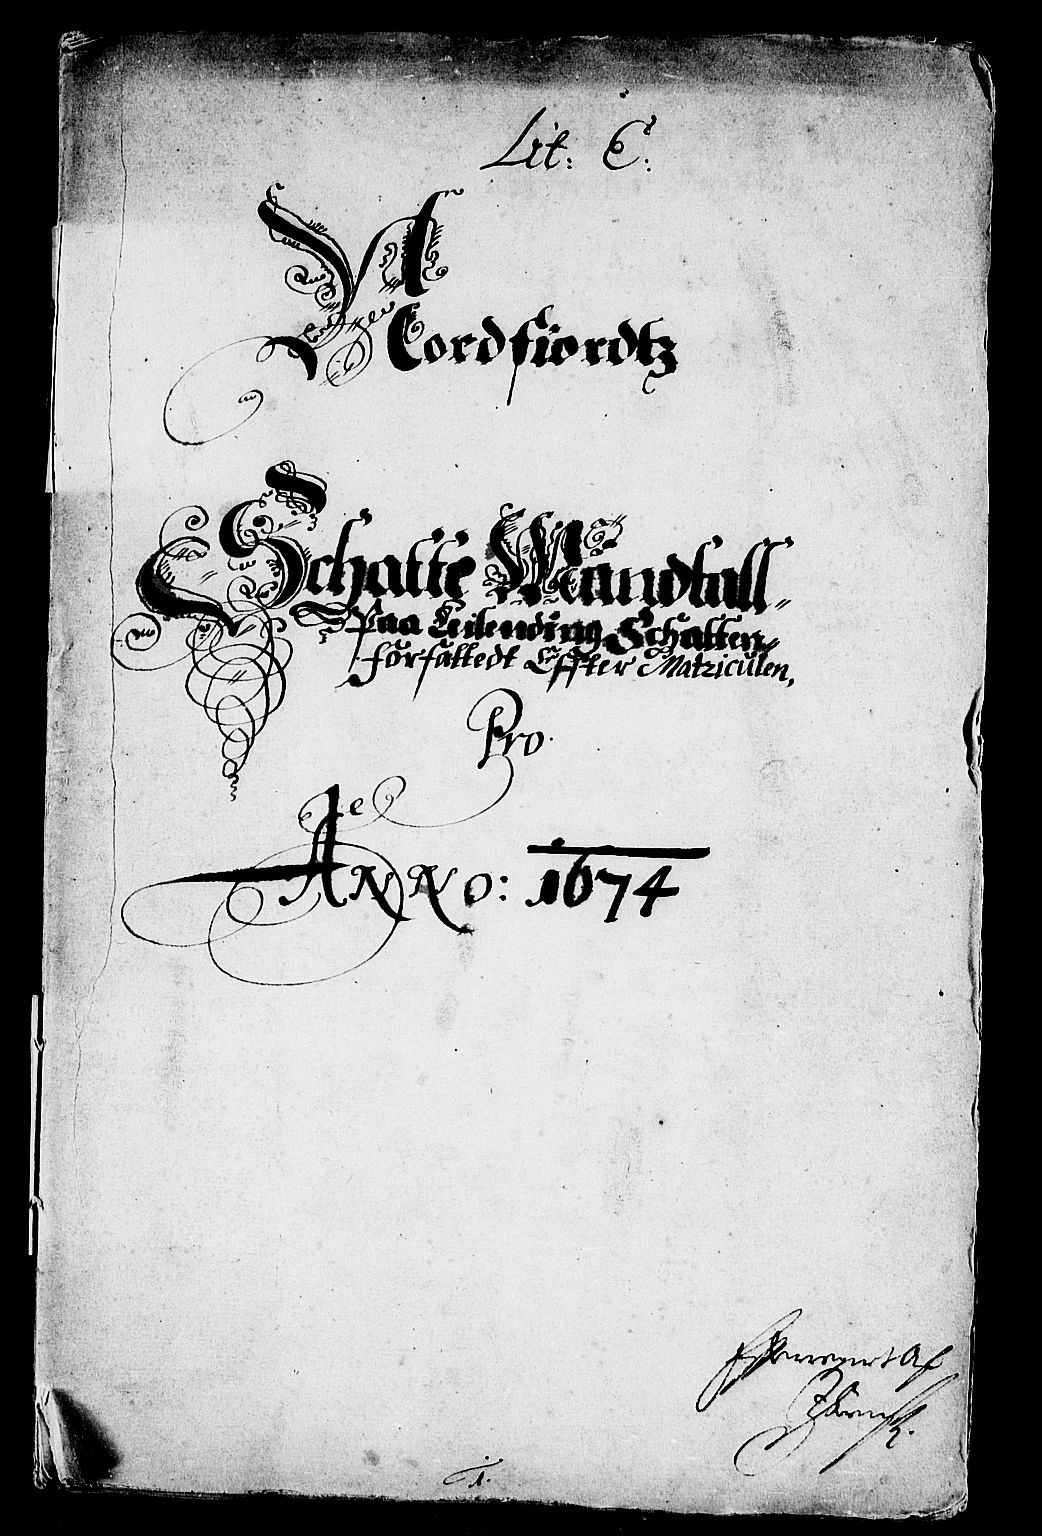 Lit: C:
Nordfiordtz
Schatte Mandtall
Paa Leilending Schatten
forfattedt Effter Matriculen,
Pro
Anno: 1674
Af
1.